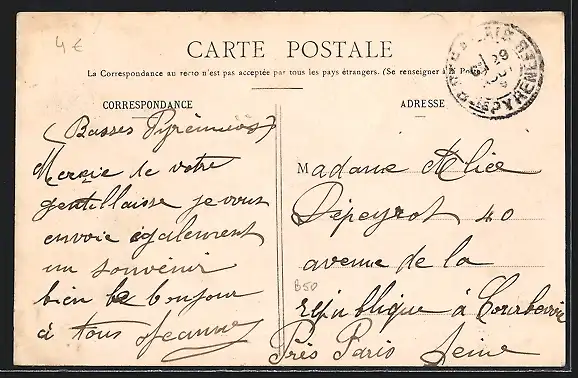 4 €
CARTE POSTALE
La Correspondance au recto n'est pas acceptée par tous les pays étrangers. (Se renseigner à la Poste)
CORRESPONDANCE
(Basses Pyrénnées)
Mercie de votre
gentillaisse je vous
envoie également
un souvenir
bien le bonjour
à tous Jeanne
ADRESSE
Madame Alice
Dépeyrot 40
avenue de la
B50
république à Courbevoie
Près Paris Seine
29
PYRENEES